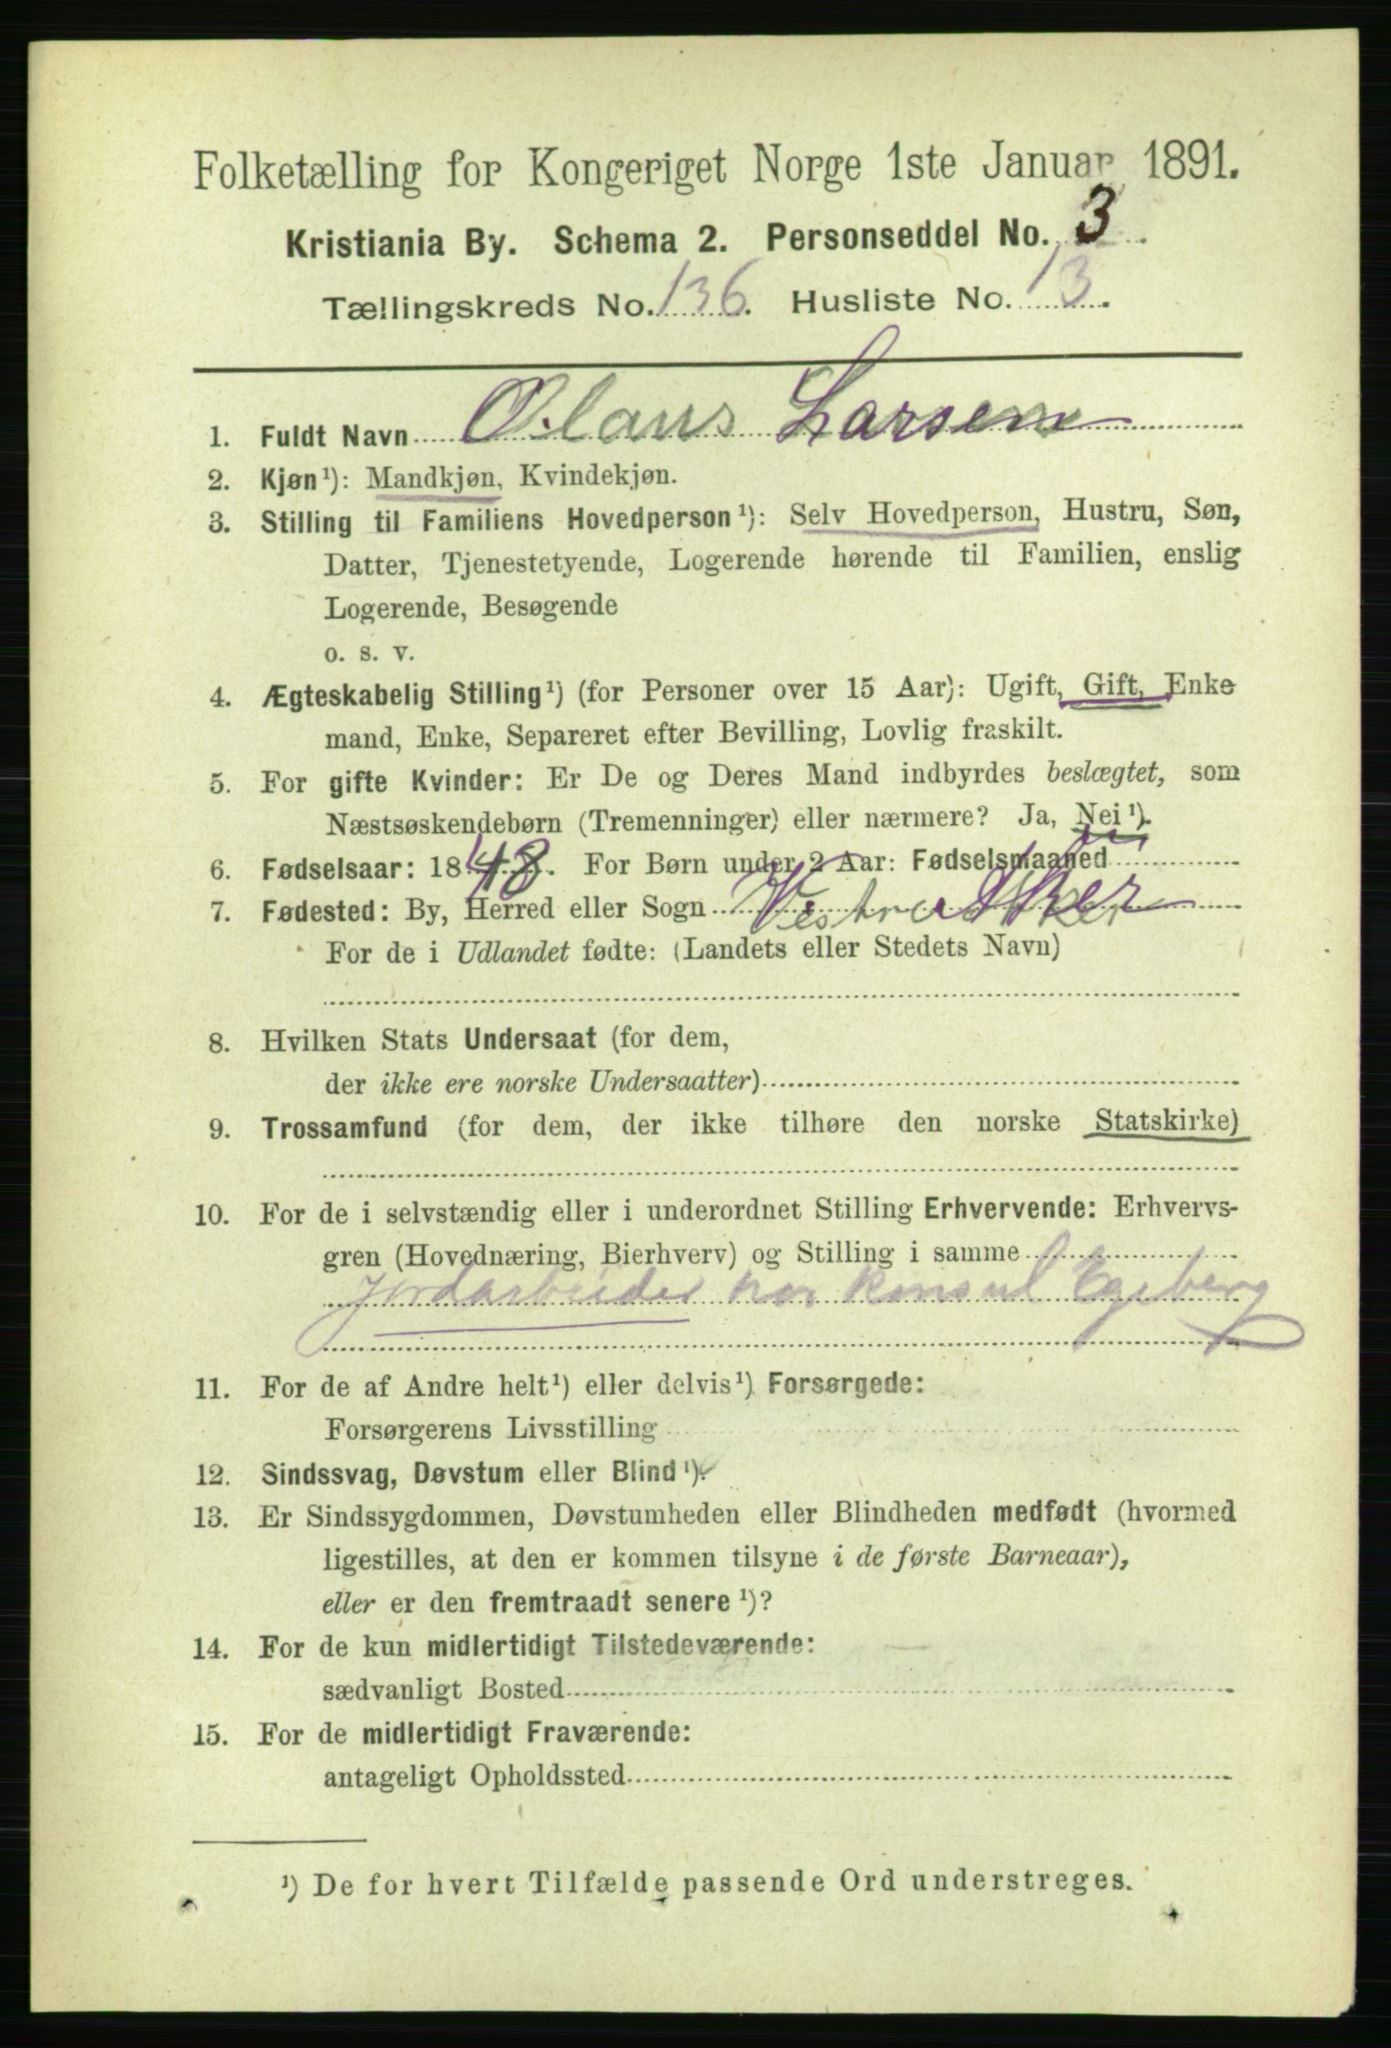 Folketælling for Kongeriget Norge 1ste Januar 1891.
Kristiania By. Schema 2. Personseddel No. 3.
Tællingskreds No. 136. Husliste No. 13.
1. Fuldt Navn Olaus Larsen
2. Kjøn¹): Mandkjøn, Kvindekjøn.
3. Stilling til Familiens Hovedperson¹): Selv Hovedperson, Hustru, Søn,
Datter, Tjenestetyende, Logerende hørende til Familien, enslig
Logerende, Besøgende
o. s. v.
4. Ægteskabelig Stilling¹) (for Personer over 15 Aar): Ugift, Gift, Enke
mand, Enke, Separeret efter Bevilling, Lovlig fraskilt.
5. For gifte Kvinder: Er De og Deres Mand indbyrdes beslægtet, som
Næstsøskendebørn (Tremenninger) eller nærmere? Ja, Nei¹).
6. Fødselsaar: 1848. For Børn under 2 Aar: Fødselsmaaned
7. Fødested: By, Herred eller Sogn Vestre Aker
For de i Udlandet fødte: (Landets eller Stedets Navn)
8. Hvilken Stats Undersaat (for dem,
der ikke ere norske Undersaatter)
9. Trossamfund (for dem, der ikke tilhøre den norske Statskirke)
10. For de i selvstændig eller i underordnet Stilling Erhvervende: Erhvervs-
gren (Hovednæring, Bierhverv) og Stilling i samme
Jordarbeider hos Konsul Egeberg
11. For de af Andre helt¹) eller delvis¹) Forsørgede:
Forsørgerens Livsstilling
12. Sindssvag, Døvstum eller Blind¹).
13. Er Sindssygdommen, Døvstumheden eller Blindheden medfødt (hvormed
ligestilles, at den er kommen tilsyne i de første Barneaar),
eller er den fremtraadt senere¹)?
14. For de kun midlertidigt Tilstedeværende:
sædvanligt Bosted
15. For de midlertidigt Fraværende:
antageligt Opholdssted
¹) De for hvert Tilfælde passende Ord understreges.